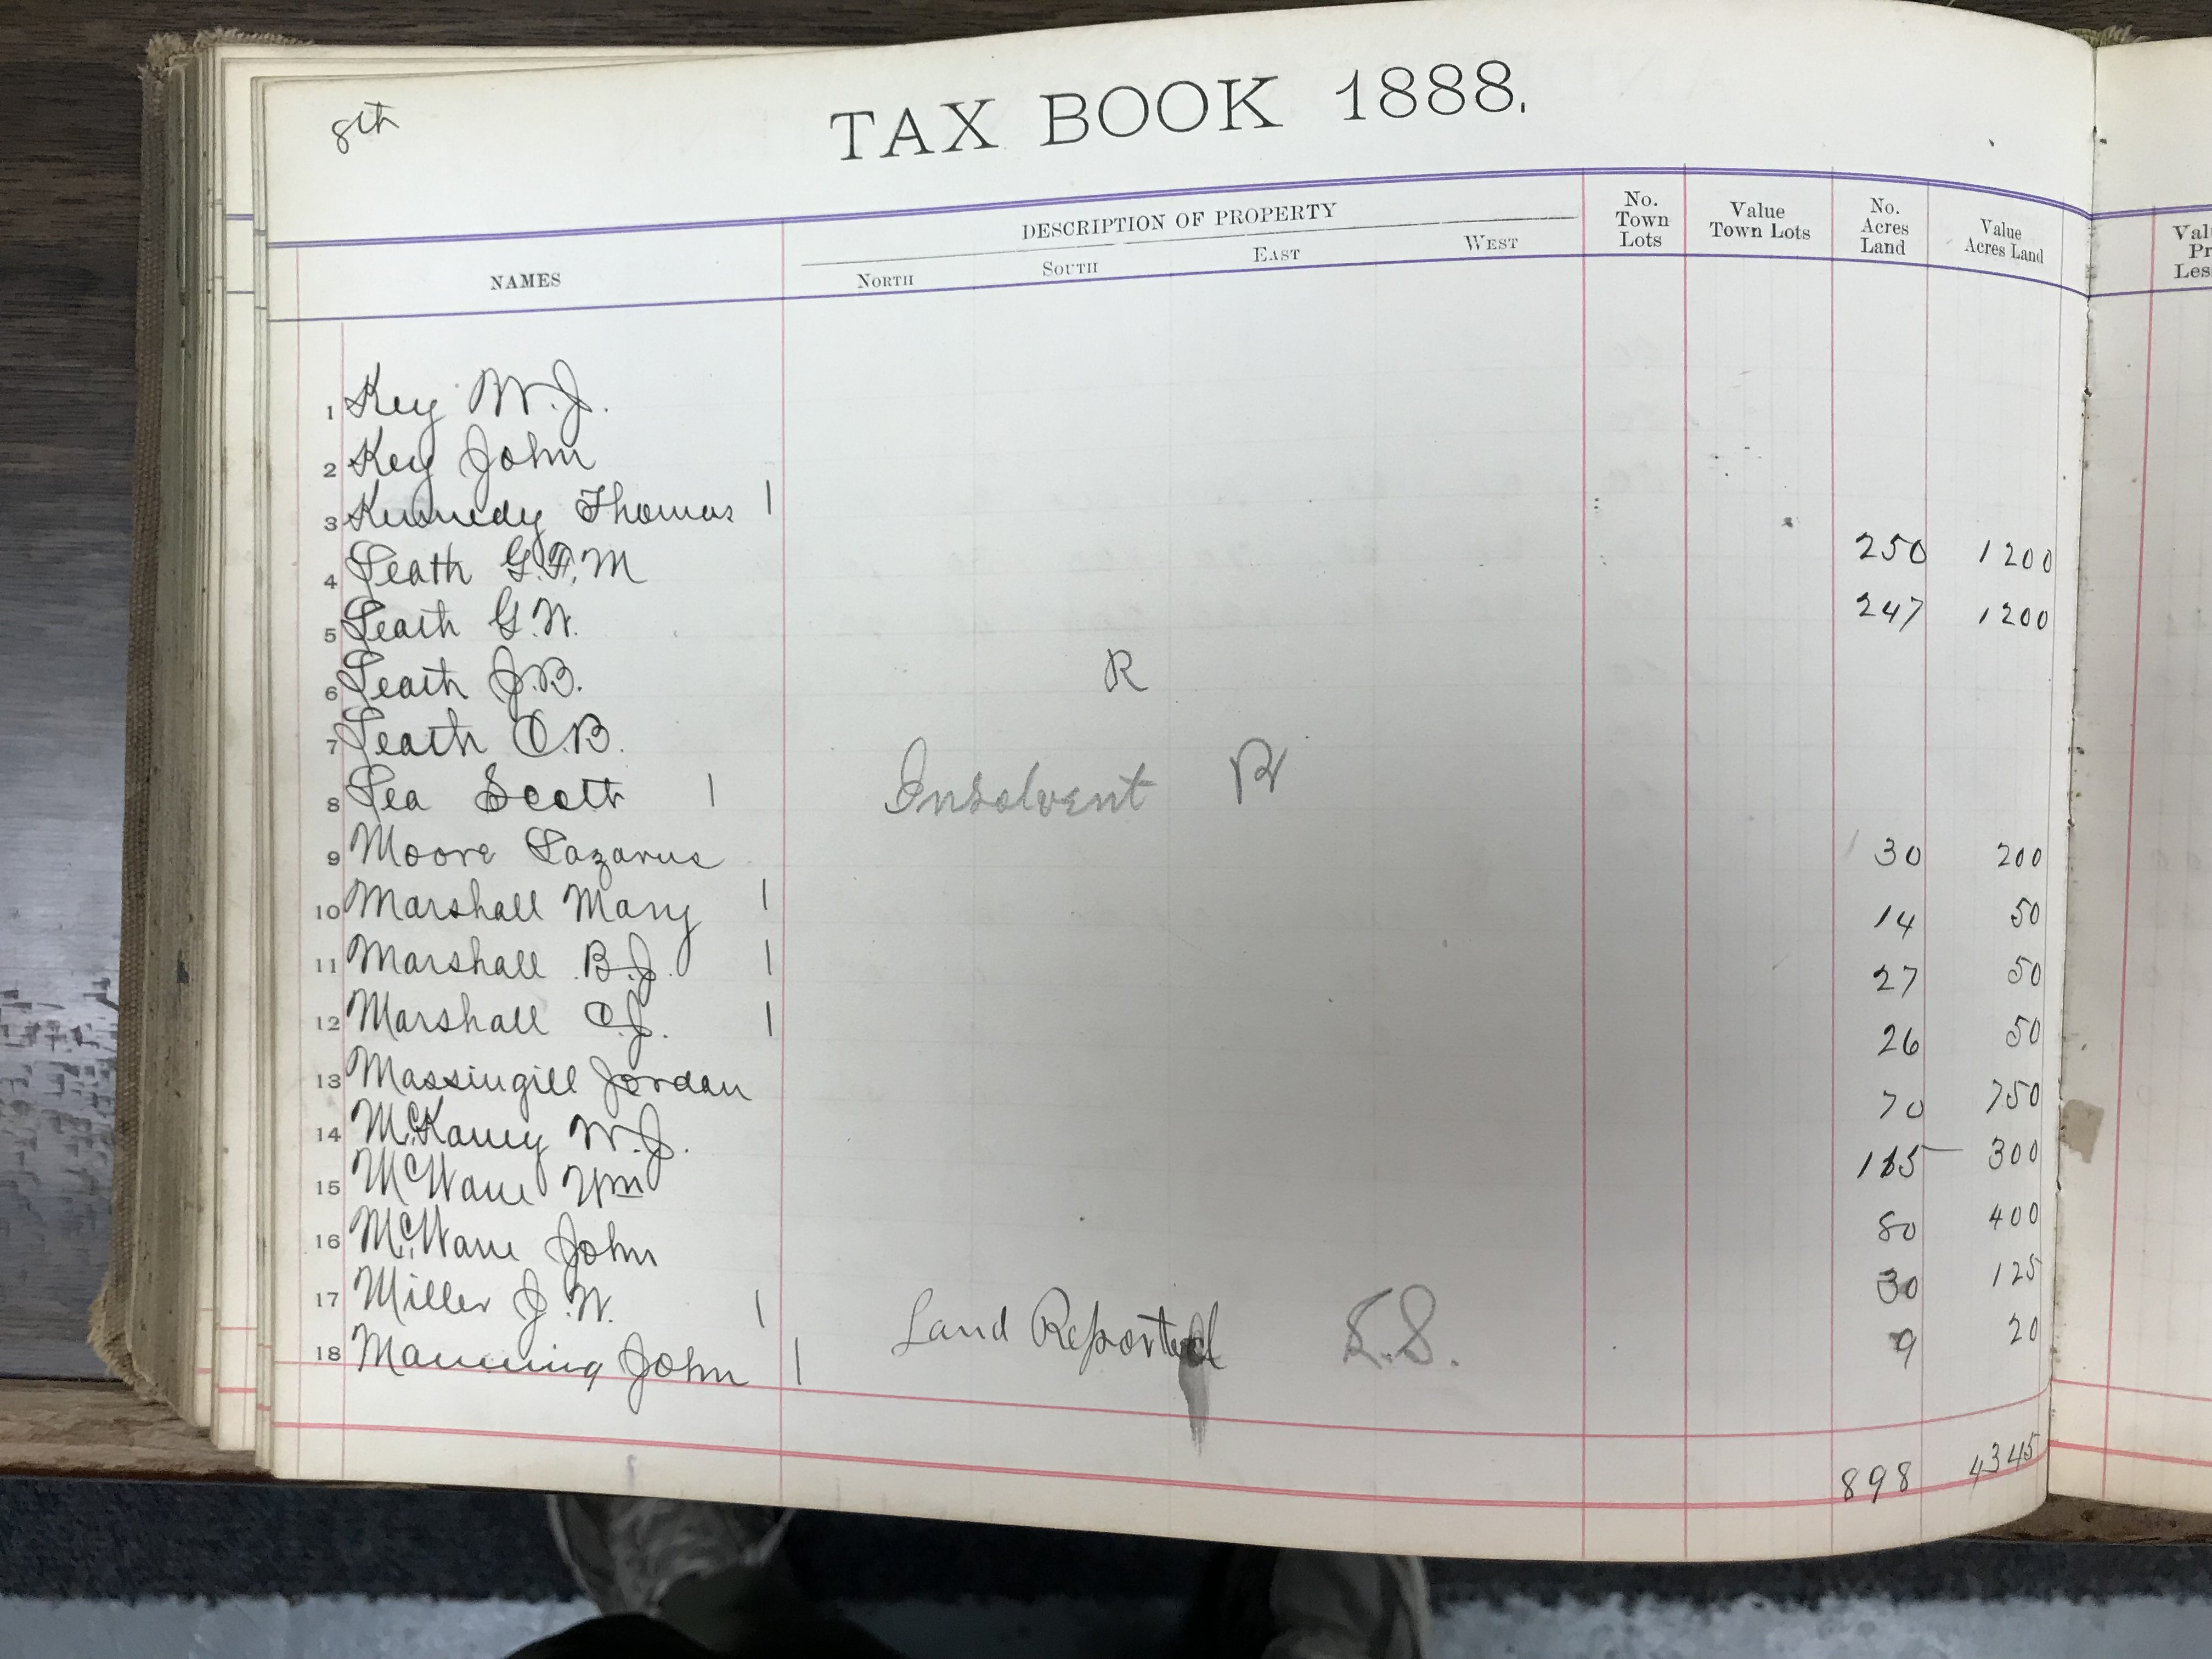 8th
TAX BOOK 1888.
NAMES DESCRIPTION OF PROPERTY No. Town Lots Value Town Lots No. Acres Land Value Acres Land
North South East West
Val
Pr
Les
1 Key W.J.
2 Key John
3 Kennedy Thomas 1
4 Leath G.F.M 250 1200
5 Leath G.W. 247 1200
6 Leath J.B. R
7 Leath O.B.
8 Lea Scott 1 Insolvent R
9 Moore Lazarus 30 200
10 Marshall Mary 1 14 50
11 Marshall B.J. 1 27 50
12 Marshall O.J. 1 26 50
13 Massingill Jordan 70 750
14 McKaney W.J. 115 300
15 McWane Wm 80 400
16 McWane John 30 125
17 Miller J.W. 1 9 20
18 Manning John 1 Land Reported E.S.
898 4345